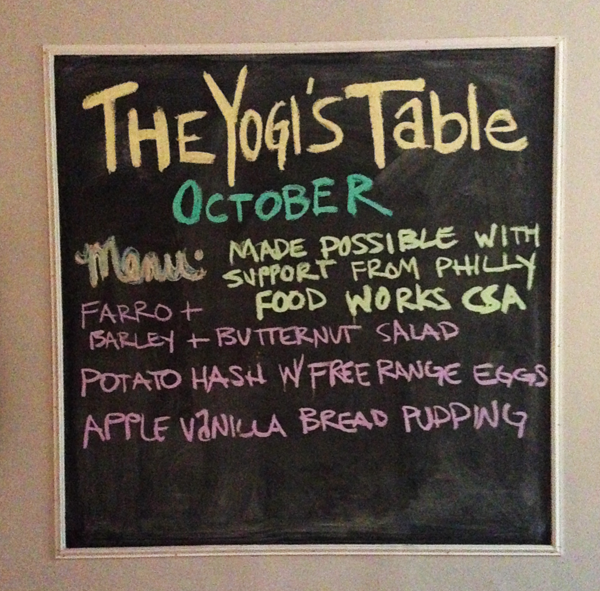 THE YOGI'S Table
OCTOBER
Menu:
MADE POSSIBLE WITH
SUPPORT FROM PHILLY
FOOD WORKS CSA
FARRO +
BARLEY + BUTTERNUT SALAD
POTATO HASH W/ FREE RANGE EGGS
APPLE VaNILLA BREAD PUDDING